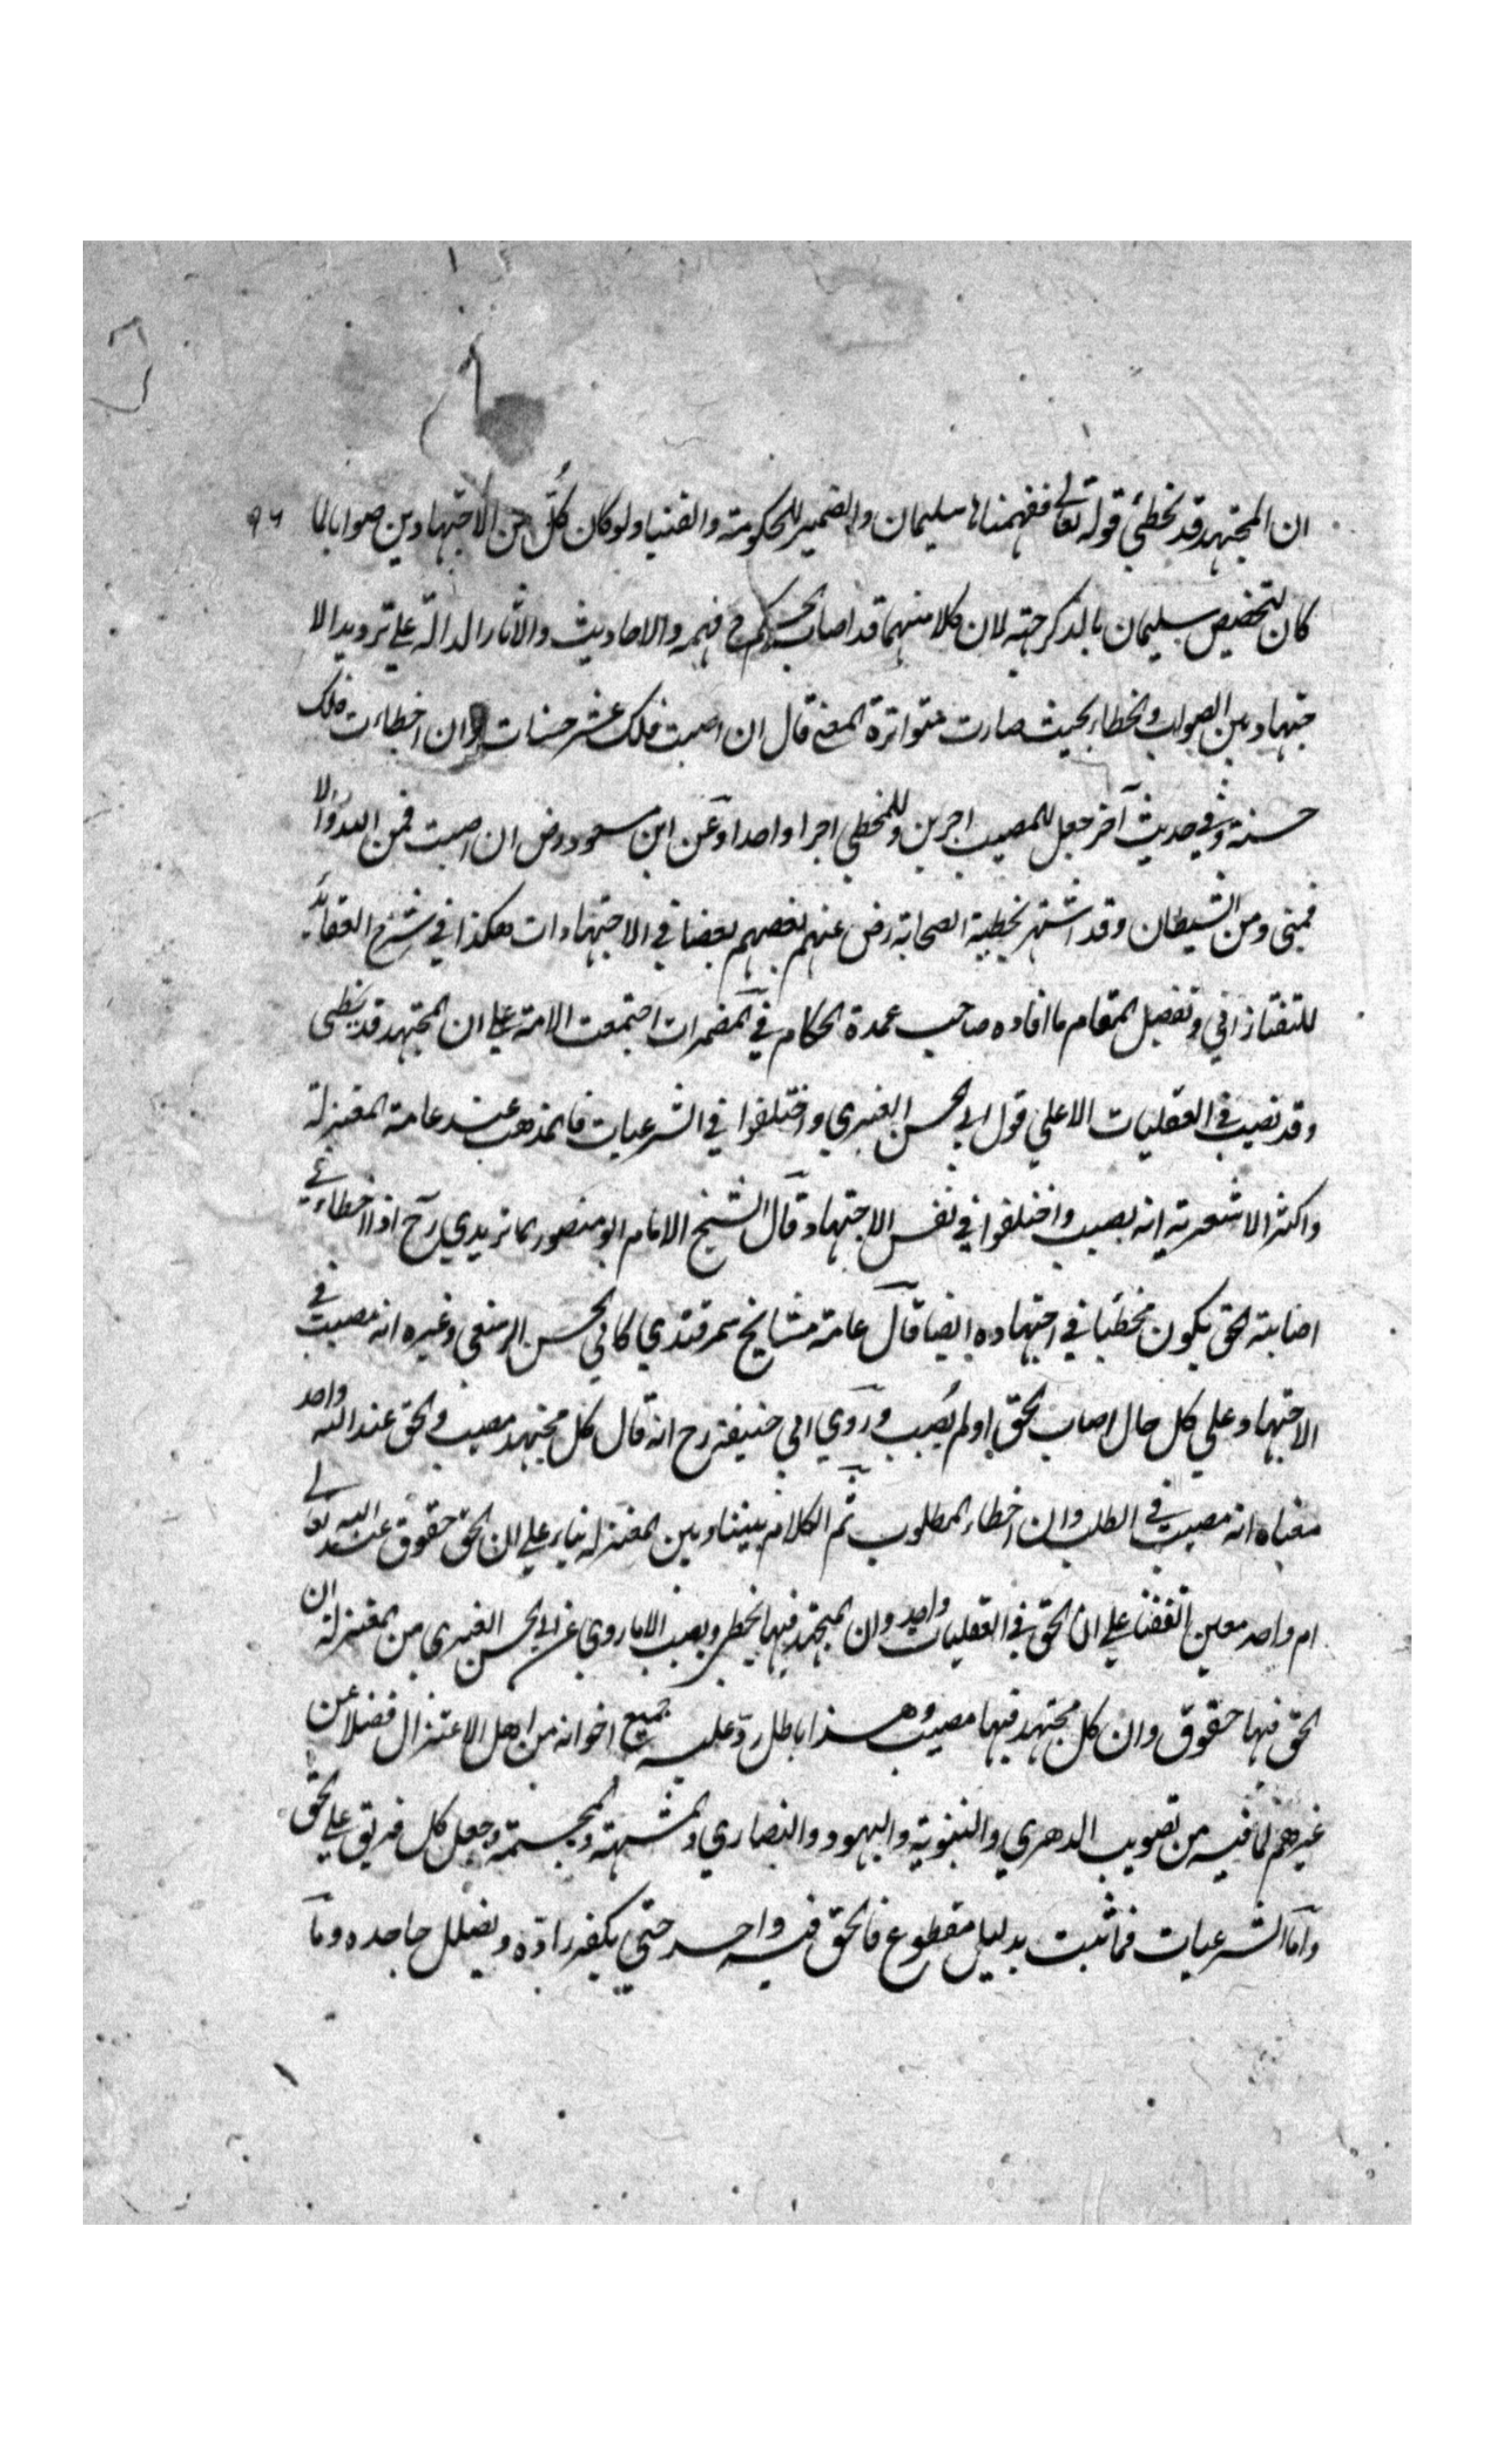 ان المجتهد قد يخطئ قوله تعالى ففهمناها سليمان والضمير للحكومة والفتيا ولو كان كلّ من الاجتهادين صوابا لما
٩٦
كان لتخصيص سليمان بالذكر جهة لان كلا منهما قد اصاب الحكم ح فهمه والاحاديث والاثار الدالة علي ترديد الا
جتهاد بين الصواب والخطاء بحيث صارت متواترة المعني قال ان اصبت فلك عشر حسنات وان اخطاءت فلك
حسنة وفي حديث آخر جعل للمصيب اجرين وللمخطي اجرا واحدا وعن ابن مسعود رض ان اصبت فمن الله والا
فمني ومن الشيطان وقد اشتهر تخطية الصحابة رض عنهم بعضهم بعضا في الاجتهادات هكذا في شرح العقائد
للتفتازاني وتفصيل المقام ما افاده صاحب عمدة الحكام في المضمرات اجتمعت الامة علي ان المجتهد قد يخطي
وقد نصيب في العقليات الا علي قول ابي الحسن العنبري واختلفوا في الشرعيات فالمذهب عند عامة المعتزلة
واكثر الاشعرية انه يصيب واختلفوا في نفس الاجتهاد قال الشيخ الامام ابو منصور ماتريدي رح اذا اخطاء في
اصابته الحق يكون مخطئا في اجتهاده ايضا قال عامة مشايخ سمرقندي كابي الحسن الرستغني وغيره انه مصيب في
الاجتهاد علي كل حال اصاب الحق او لم يُصب وروي ابي حنيفة رح انه قال كل مجتهد مصيب والحق عند الله واحد
معناه انه مصيب في الطلب وان اخطاء المطلوب ثم الكلام بيننا وبين المعتزلة بناء علي ان الحق حقوق عند الله تعالي
ام واحد معين اتفقنا علي ان الحق في العقليات واحد وان المجتهد فيها يخطئ ويصيب الا ما روي عن ابي الحسن العنبري من المعتزلة ان
الحق فيها حقوق وان كل مجتهد فيها مصيب وهذا باطل ردّ عليه جميع اخوانه من اهل الاعتزال فضلا عن
غيرهم لما فيه من تصويب الدهري والثنوية واليهود والنصاري والمشبهة والمجسمة وجعل كل فريق علي الحق
واما الشرعيات فما ثبت بدليل مقطوع فالحق فيه واحد حتي يكفر رادّه ويضلل جاحده وما